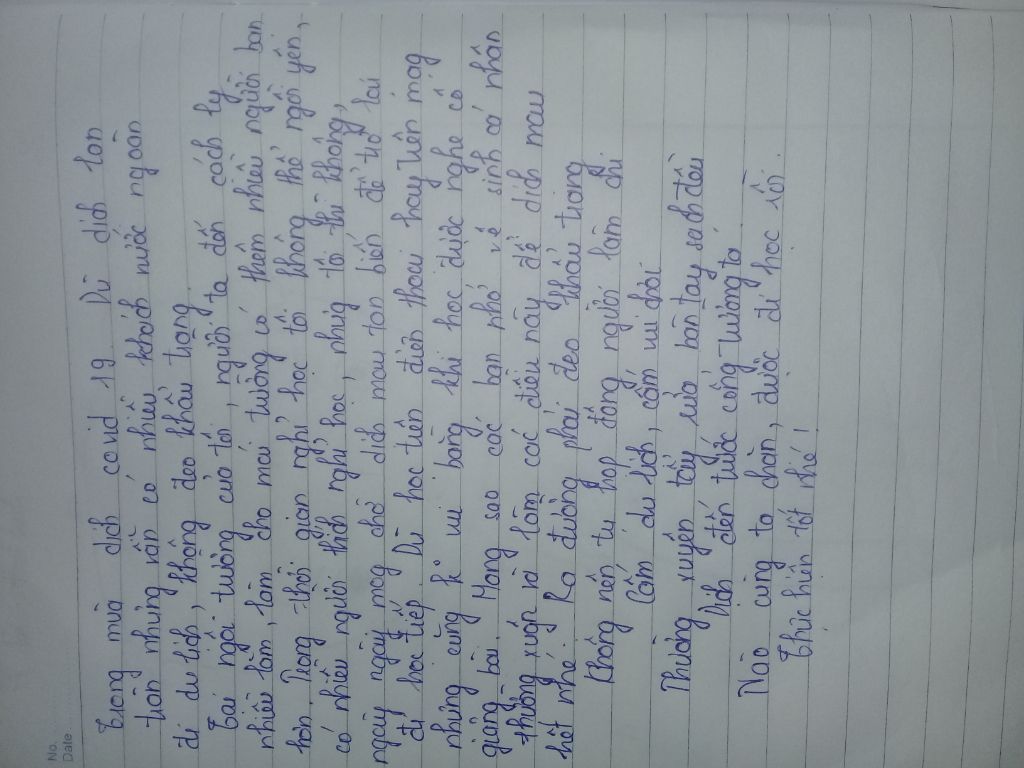 No.
Date
Trong mùa dịch covid 19. Dù dịch lan
tràn nhưng vẫn có nhiều khách nước ngoài
đi du lịch, không đeo khẩu trang.
Tại ngôi trường của tôi, người ta đến cách ly
nhiều lắm, làm cho mái trường có thêm nhiều người bạn
hơn. Trong thời gian nghỉ học tôi không thể ngồi yên,
có nhiều người thích nghỉ học, nhưng tôi thì không,
ngày ngày mong chờ dịch mau tan biến để trở lại
đi học tiếp. Dù học trên điện thoại hay trên mạng
nhưng cũng k vui bằng khi học được nghe cô
giảng bài. Mong sao các bạn nhỏ vệ sinh cá nhân
thường xuyên và làm các điều này để dịch mau
hết nhé. Ra đường phải đeo khẩu trang
Không nên tụ họp đông người làm chi
Cấm du lịch, cấm vui chơi
Thường xuyên tẩy rửa bàn tay sạch đều
Dịch đến trước cổng trường ta
Nào cùng ta chăn, được đi học rồi.
Thực hiện tốt nhé!